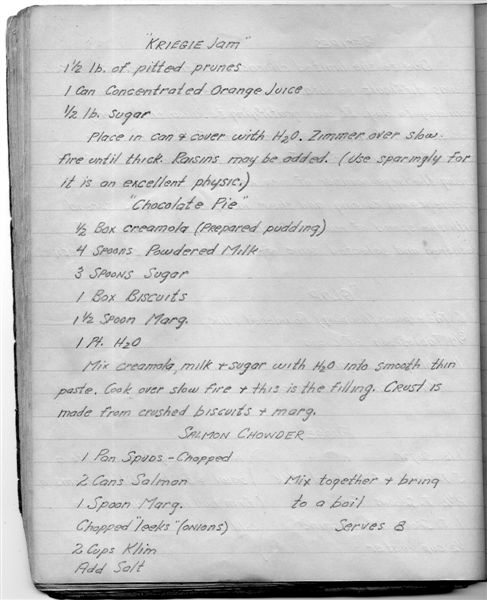 "KRIEGIE Jam"
1 1/2 lb. of pitted prunes
1 Can Concentrated Orange Juice
1/2 lb. sugar
Place in can & cover with H2O. Zimmer over slow
fire until thick. Raisins may be added. (Use sparingly for
it is an excellent physic.)
"Chocolate Pie"
1/2 Box creamola (Prepared pudding)
4 Spoons Powdered Milk
3 Spoons Sugar
1 Box Biscuits
1 1/2 Spoon Marg.
1 Pt. H2O
Mix creamola, milk + sugar with H2O into smooth thin
paste. Cook over slow fire + this is the filling. Crust is
made from crushed biscuits + marg.
SALMON CHOWDER
1 Pan Spuds - Chopped
2 Cans Salmon
1 Spoon Marg.
Chopped "leeks" (onions)
2 Cups Klim
Add Salt
Mix together + bring
to a boil
Serves 8